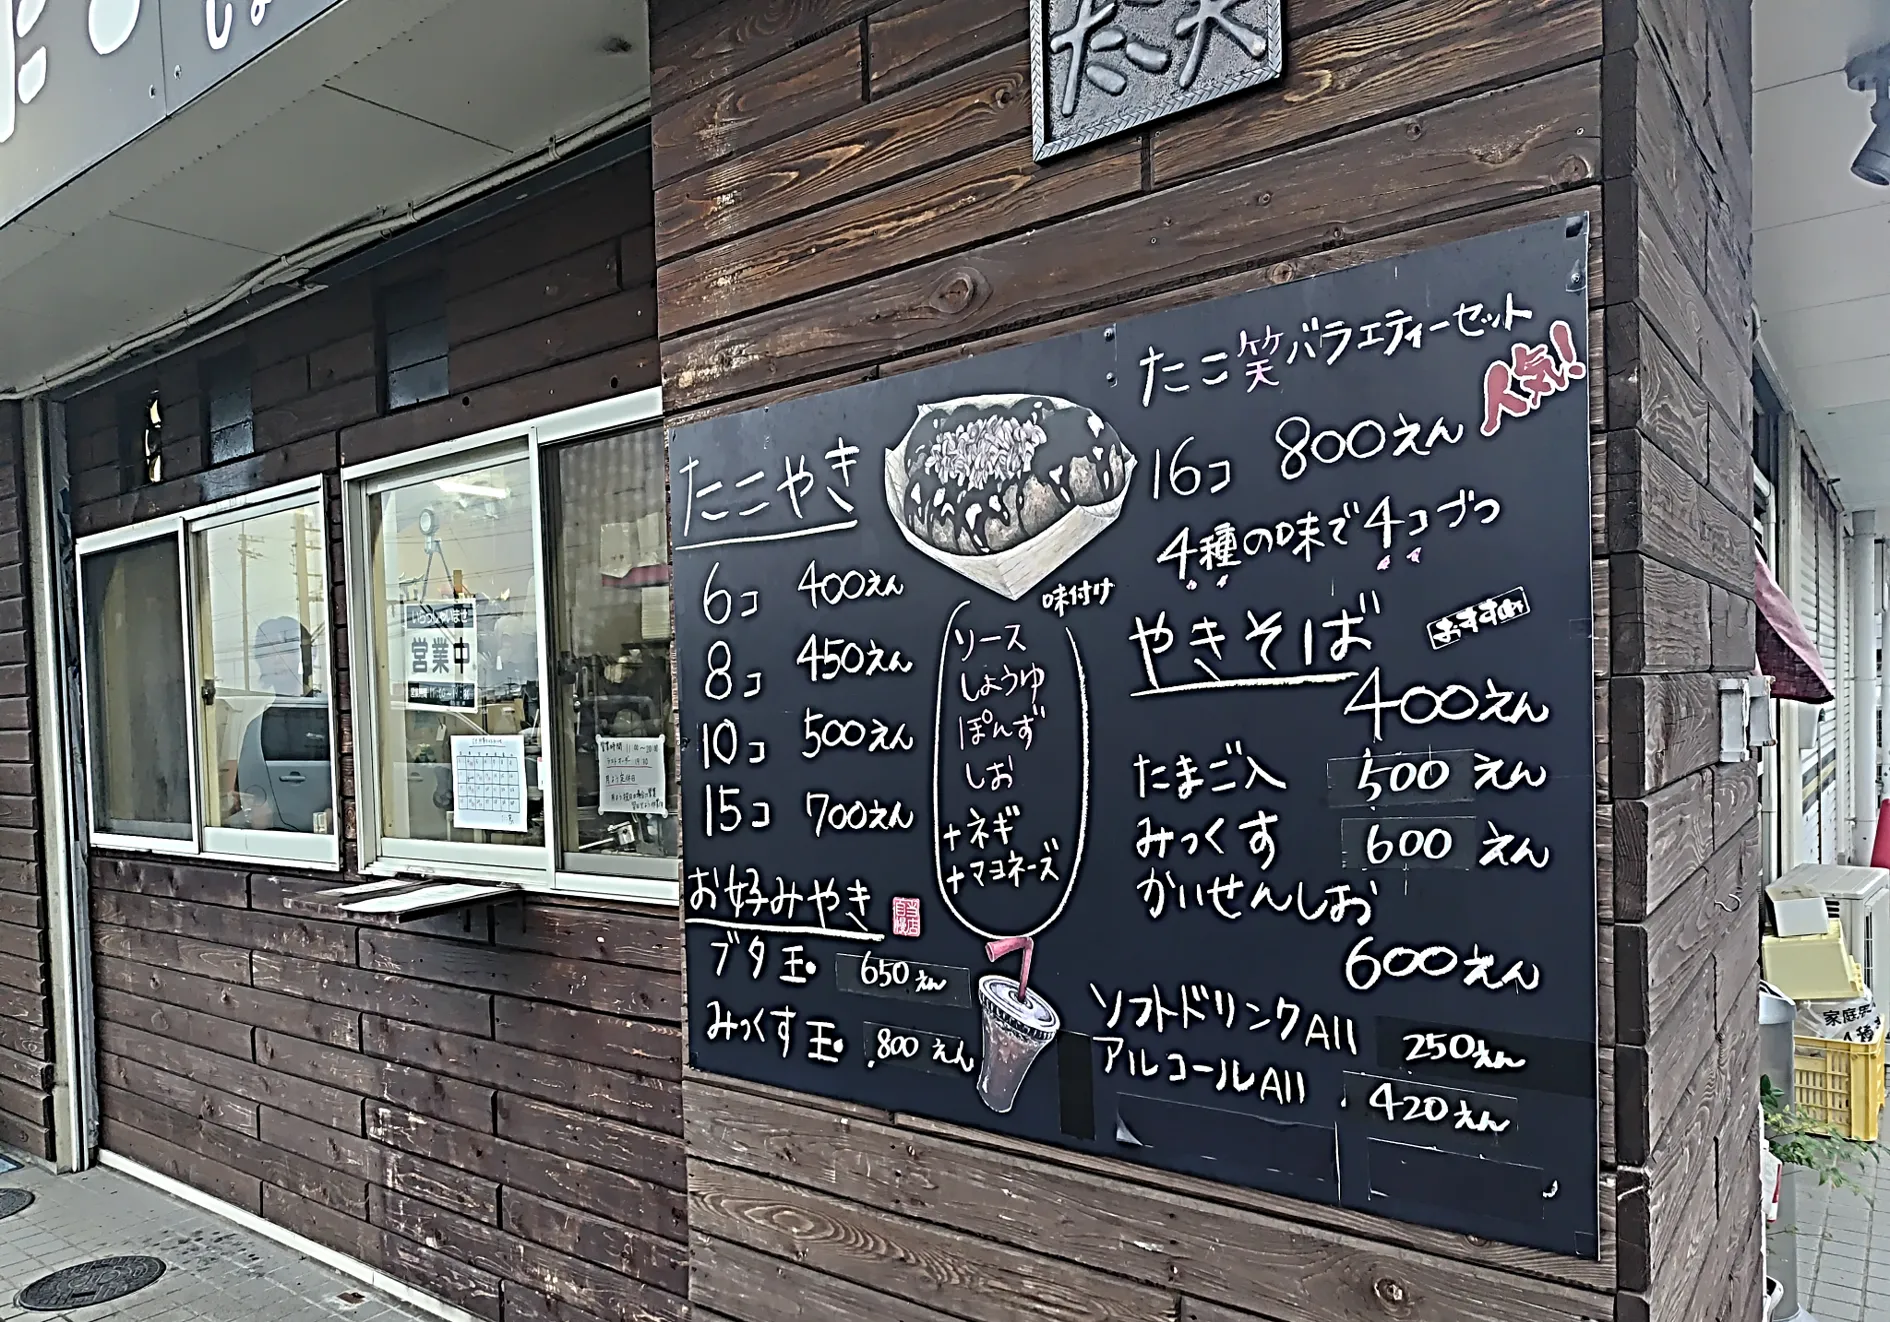 たこ笑
いらっしゃいませ
営業中
営業時間 11:00〜20:00
たこやき
6コ 400えん
8コ 450えん
10コ 500えん
15コ 700えん
お好みやき
当店自慢
ブタ玉 650えん
みっくす玉 800えん
味付け
ソース
しょうゆ
ぽんず
しお
+ネギ
+マヨネーズ
たこ笑バラエティーセット
人気!
16コ 800えん
4種の味で4コづつ
やきそば
おすすめ
400えん
たまご入 500えん
みっくす 600えん
かいせんしお
600えん
ソフトドリンクAll 250えん
アルコールAll 420えん